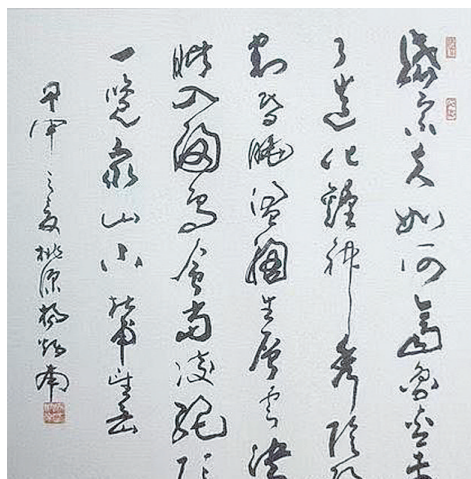 岱宗夫如何齊魯青未
了造化鍾神秀陰陽
割昏曉盪胸生層雲決
眥入歸鳥會當凌絕頂
一覽眾山小杜甫望岳
甲申之夏桃源楊南